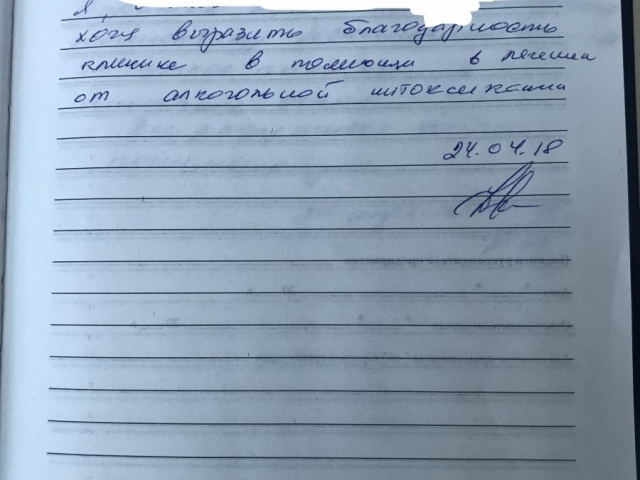 Я,
хочу выразить благодарность
клинике в помощи в лечении
от алкогольной интоксикации
24.04.18